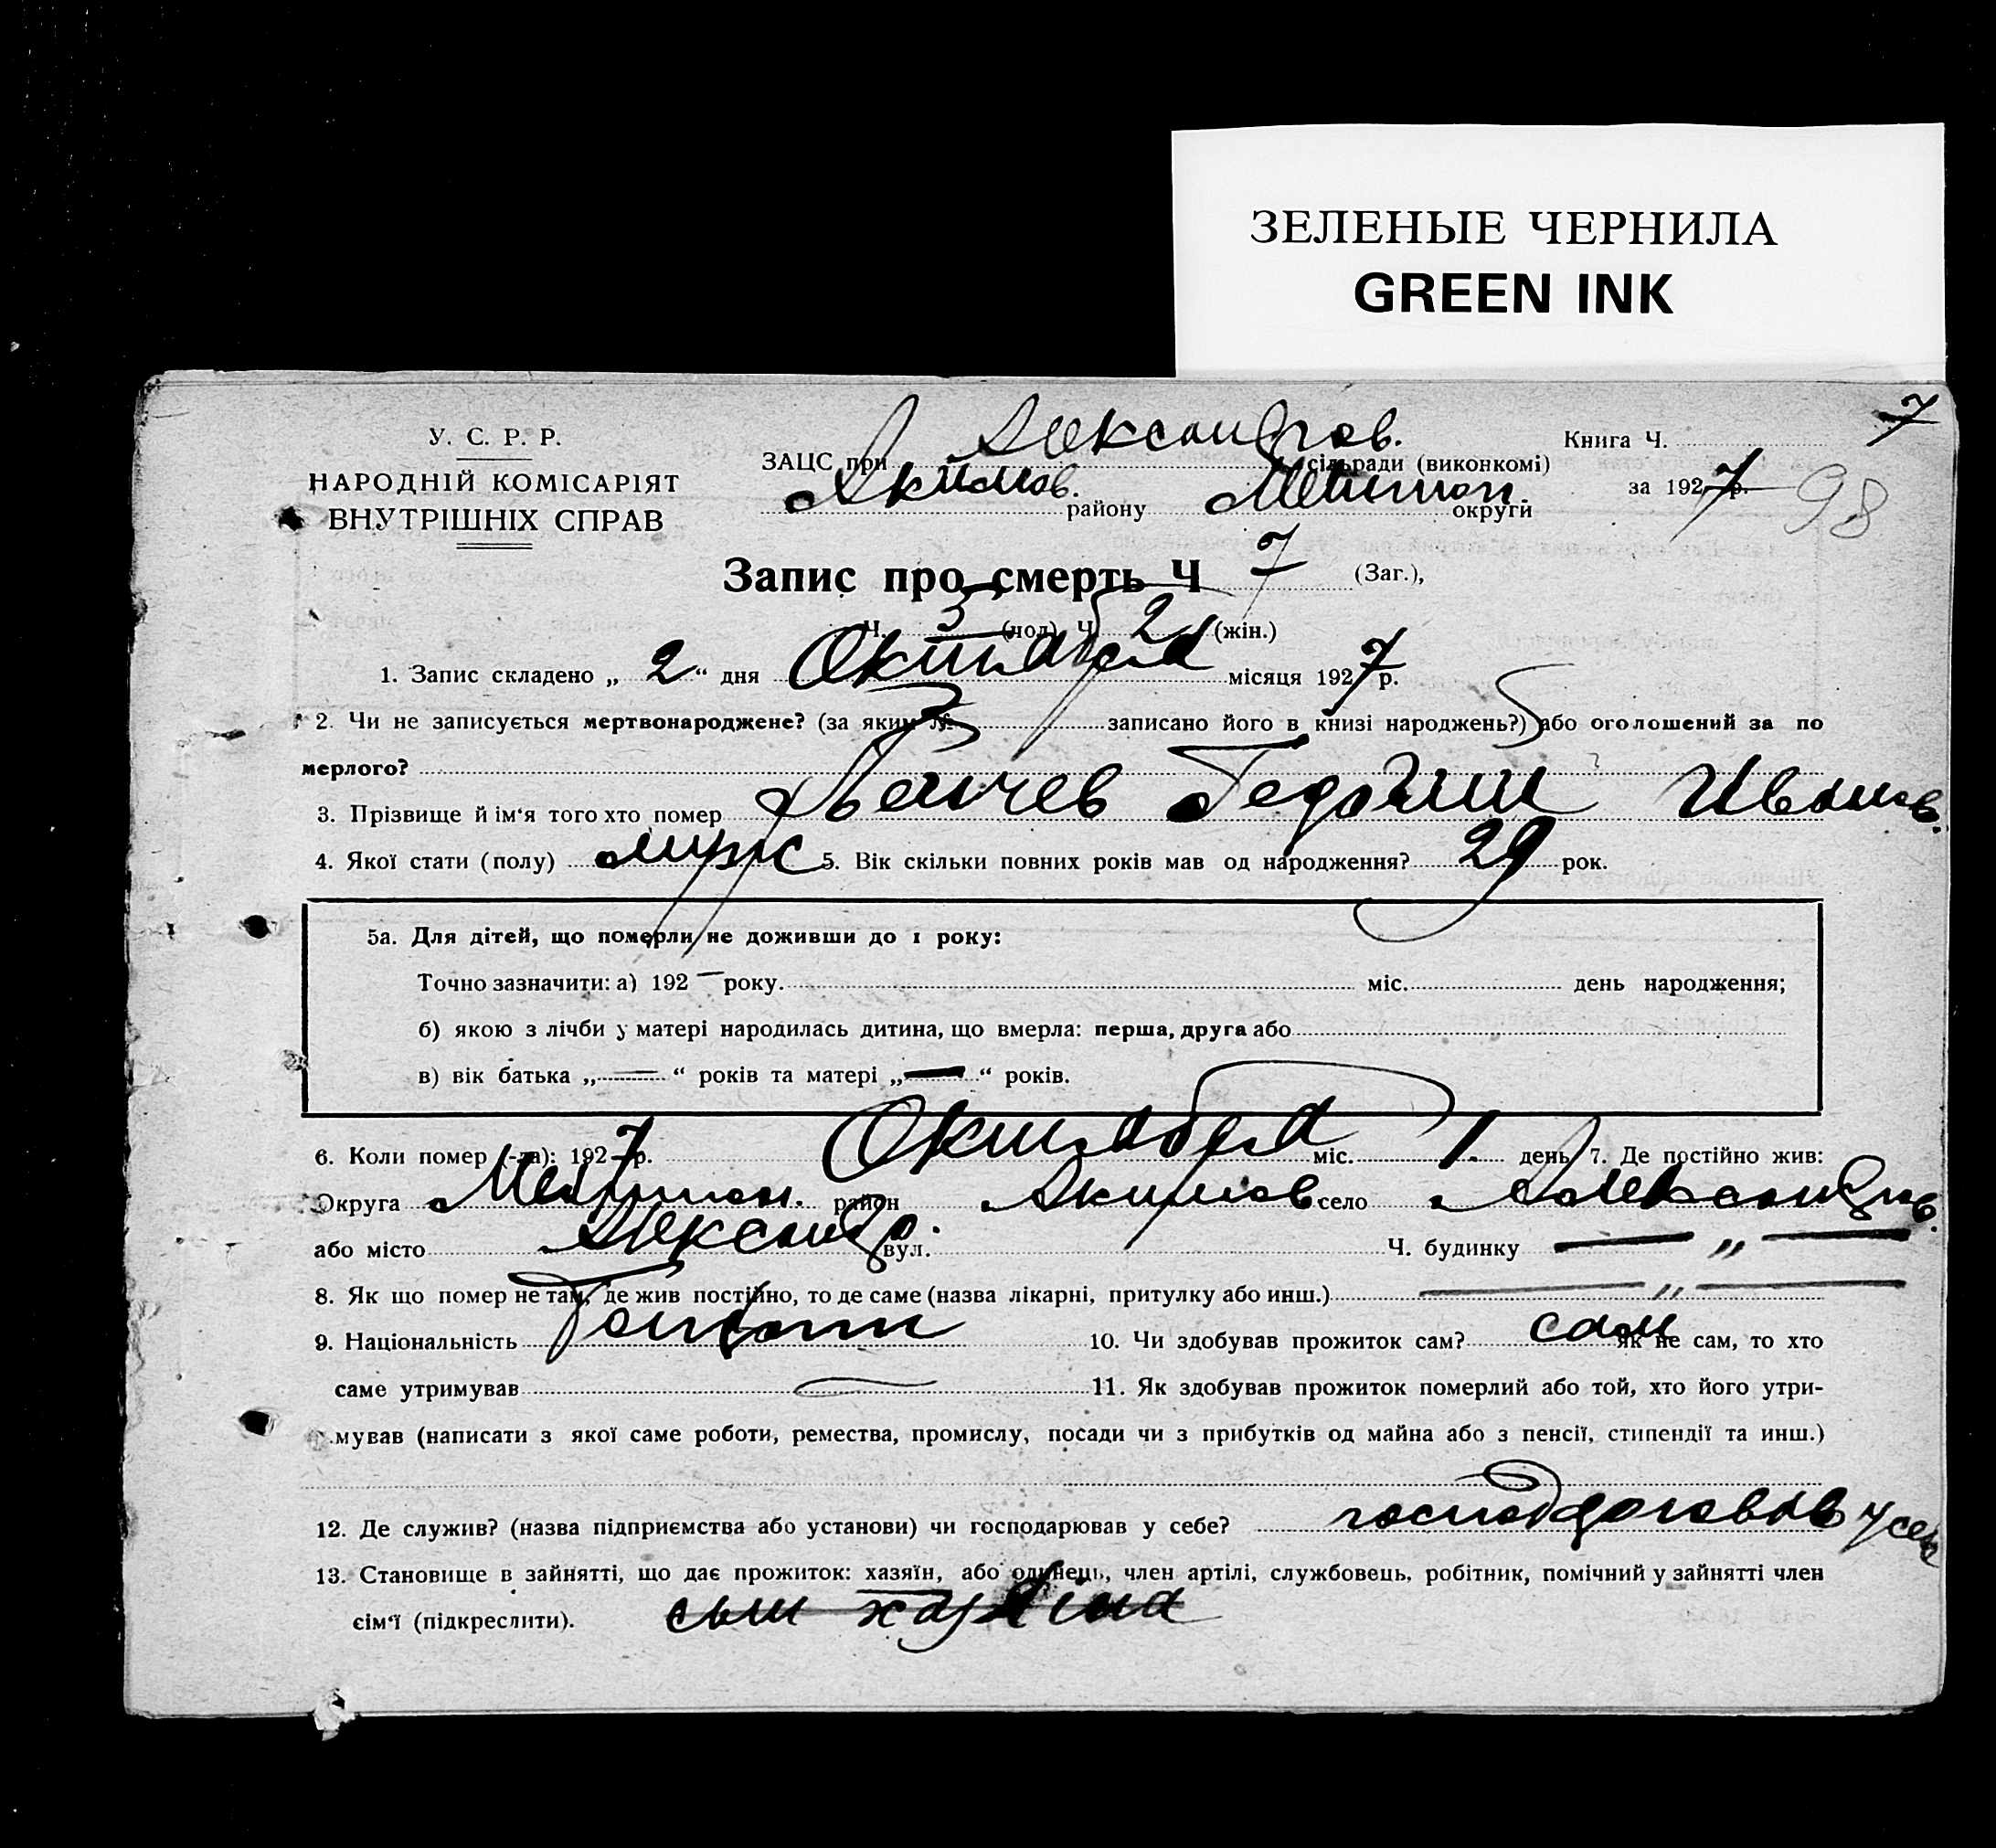 ЗЕЛЕНЫЕ ЧЕРНИЛА
GREEN INK
У. С. Р. Р.
НАРОДНІЙ КОМІСАРІЯТ
ВНУТРІШНІХ СПРАВ
ЗАЦС при Александров. сільради (виконкомі)
Акимов. району Мелитоп. округи
Книга Ч. 7
за 1927 р. 98
Запис про смерть Ч 7 (Заг.),
Ч. 5 (чол) Ч. 2 (жін.)
1. Запис складено „ 2 “ дня Октября місяця 1927 р.
2. Чи не записується мертвонароджене? (за яким № записано його в книзі народжень?) або оголошений за по
мерлого?
3. Прізвище й ім‘я того хто помер Георгий Иванов.
4. Якої стати (полу) муж 5. Вік скільки повних років мав од народження? 29 рок.
5а. Для дітей, що померли не доживши до 1 року:
Точно зазначити: а) 192 — року. міс. день народження;
б) якою з лічби у матері народилась дитина, що вмерла: перша, друга або
в) вік батька „ — “ років та матері „ — “ років.
6. Коли помер (-ла): 1927 р. Октября міс. 1. день 7. Де постійно жив:
Округа Мелитоп. район Акимов село Александров.
або місто Александр. вул. Ч. будинку — „ —
8. Як що помер не там, де жив постійно, то де саме (назва лікарні, притулку або инш.) — „ —
9. Національність 10. Чи здобував прожиток сам? сам як не сам, то хто
саме утримував — 11. Як здобував прожиток померлий або той, хто його утри-
мував (написати з якої саме роботи, ремества, промислу, посади чи з прибутків од майна або з пенсії, стипендії та инш.)
12. Де служив? (назва підприємства або установи) чи господарював у себе?
13. Становище в зайнятті, що дає прожиток: хазяїн, або одинець, член артілі, службовець, робітник, помічний у зайнятті член
сім‘ї (підкреслити). сын хазяіна